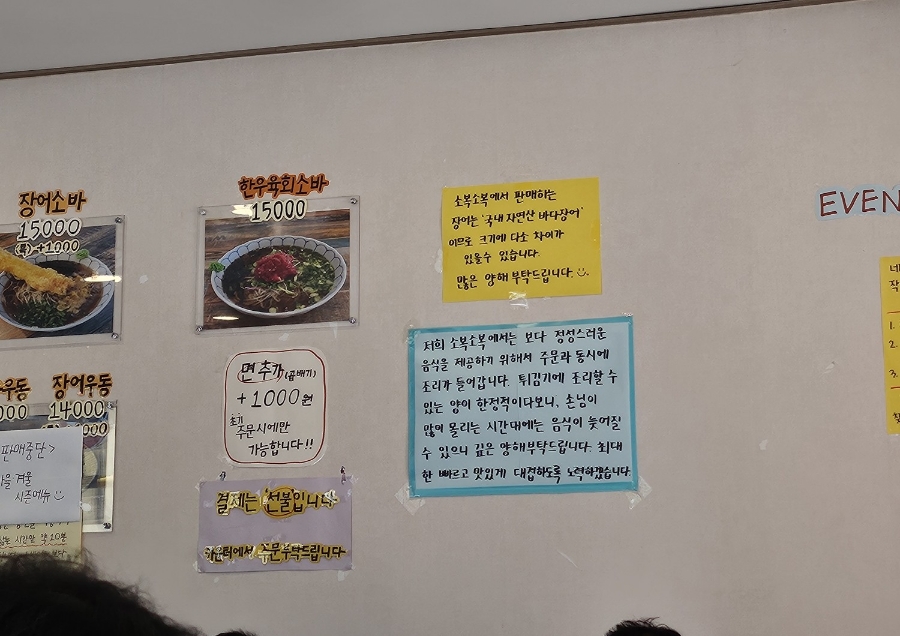 장어소바
15000
(특)+1000
우동
000
장어우동
14000
판매중단>
겨울
시즌메뉴
한우육회소바
15000
면추가(곱배기)
+1000원
초기
주문시에만
가능합니다!!
결제는 선불입니다
카운터에서 주문부탁드립니다
소복소복에서 판매하는
장어는 '국내 자연산 바다장어'
이므로 크기에 다소 차이가
있을수 있습니다.
많은 양해 부탁드립니다
저희 소복소복에서는 보다 정성스러운
음식을 제공하기 위해서 주문과 동시에
조리가 들어갑니다. 튀김기에 조리할 수
있는 양이 한정적이다보니, 손님이
많이 몰리는 시간대에는 음식이 늦어질
수 있으니 깊은 양해부탁드립니다. 최대
한 빠르고 맛있게 대접하도록 노력하겠습니다
EVEN
네
작
1.
2.
3.